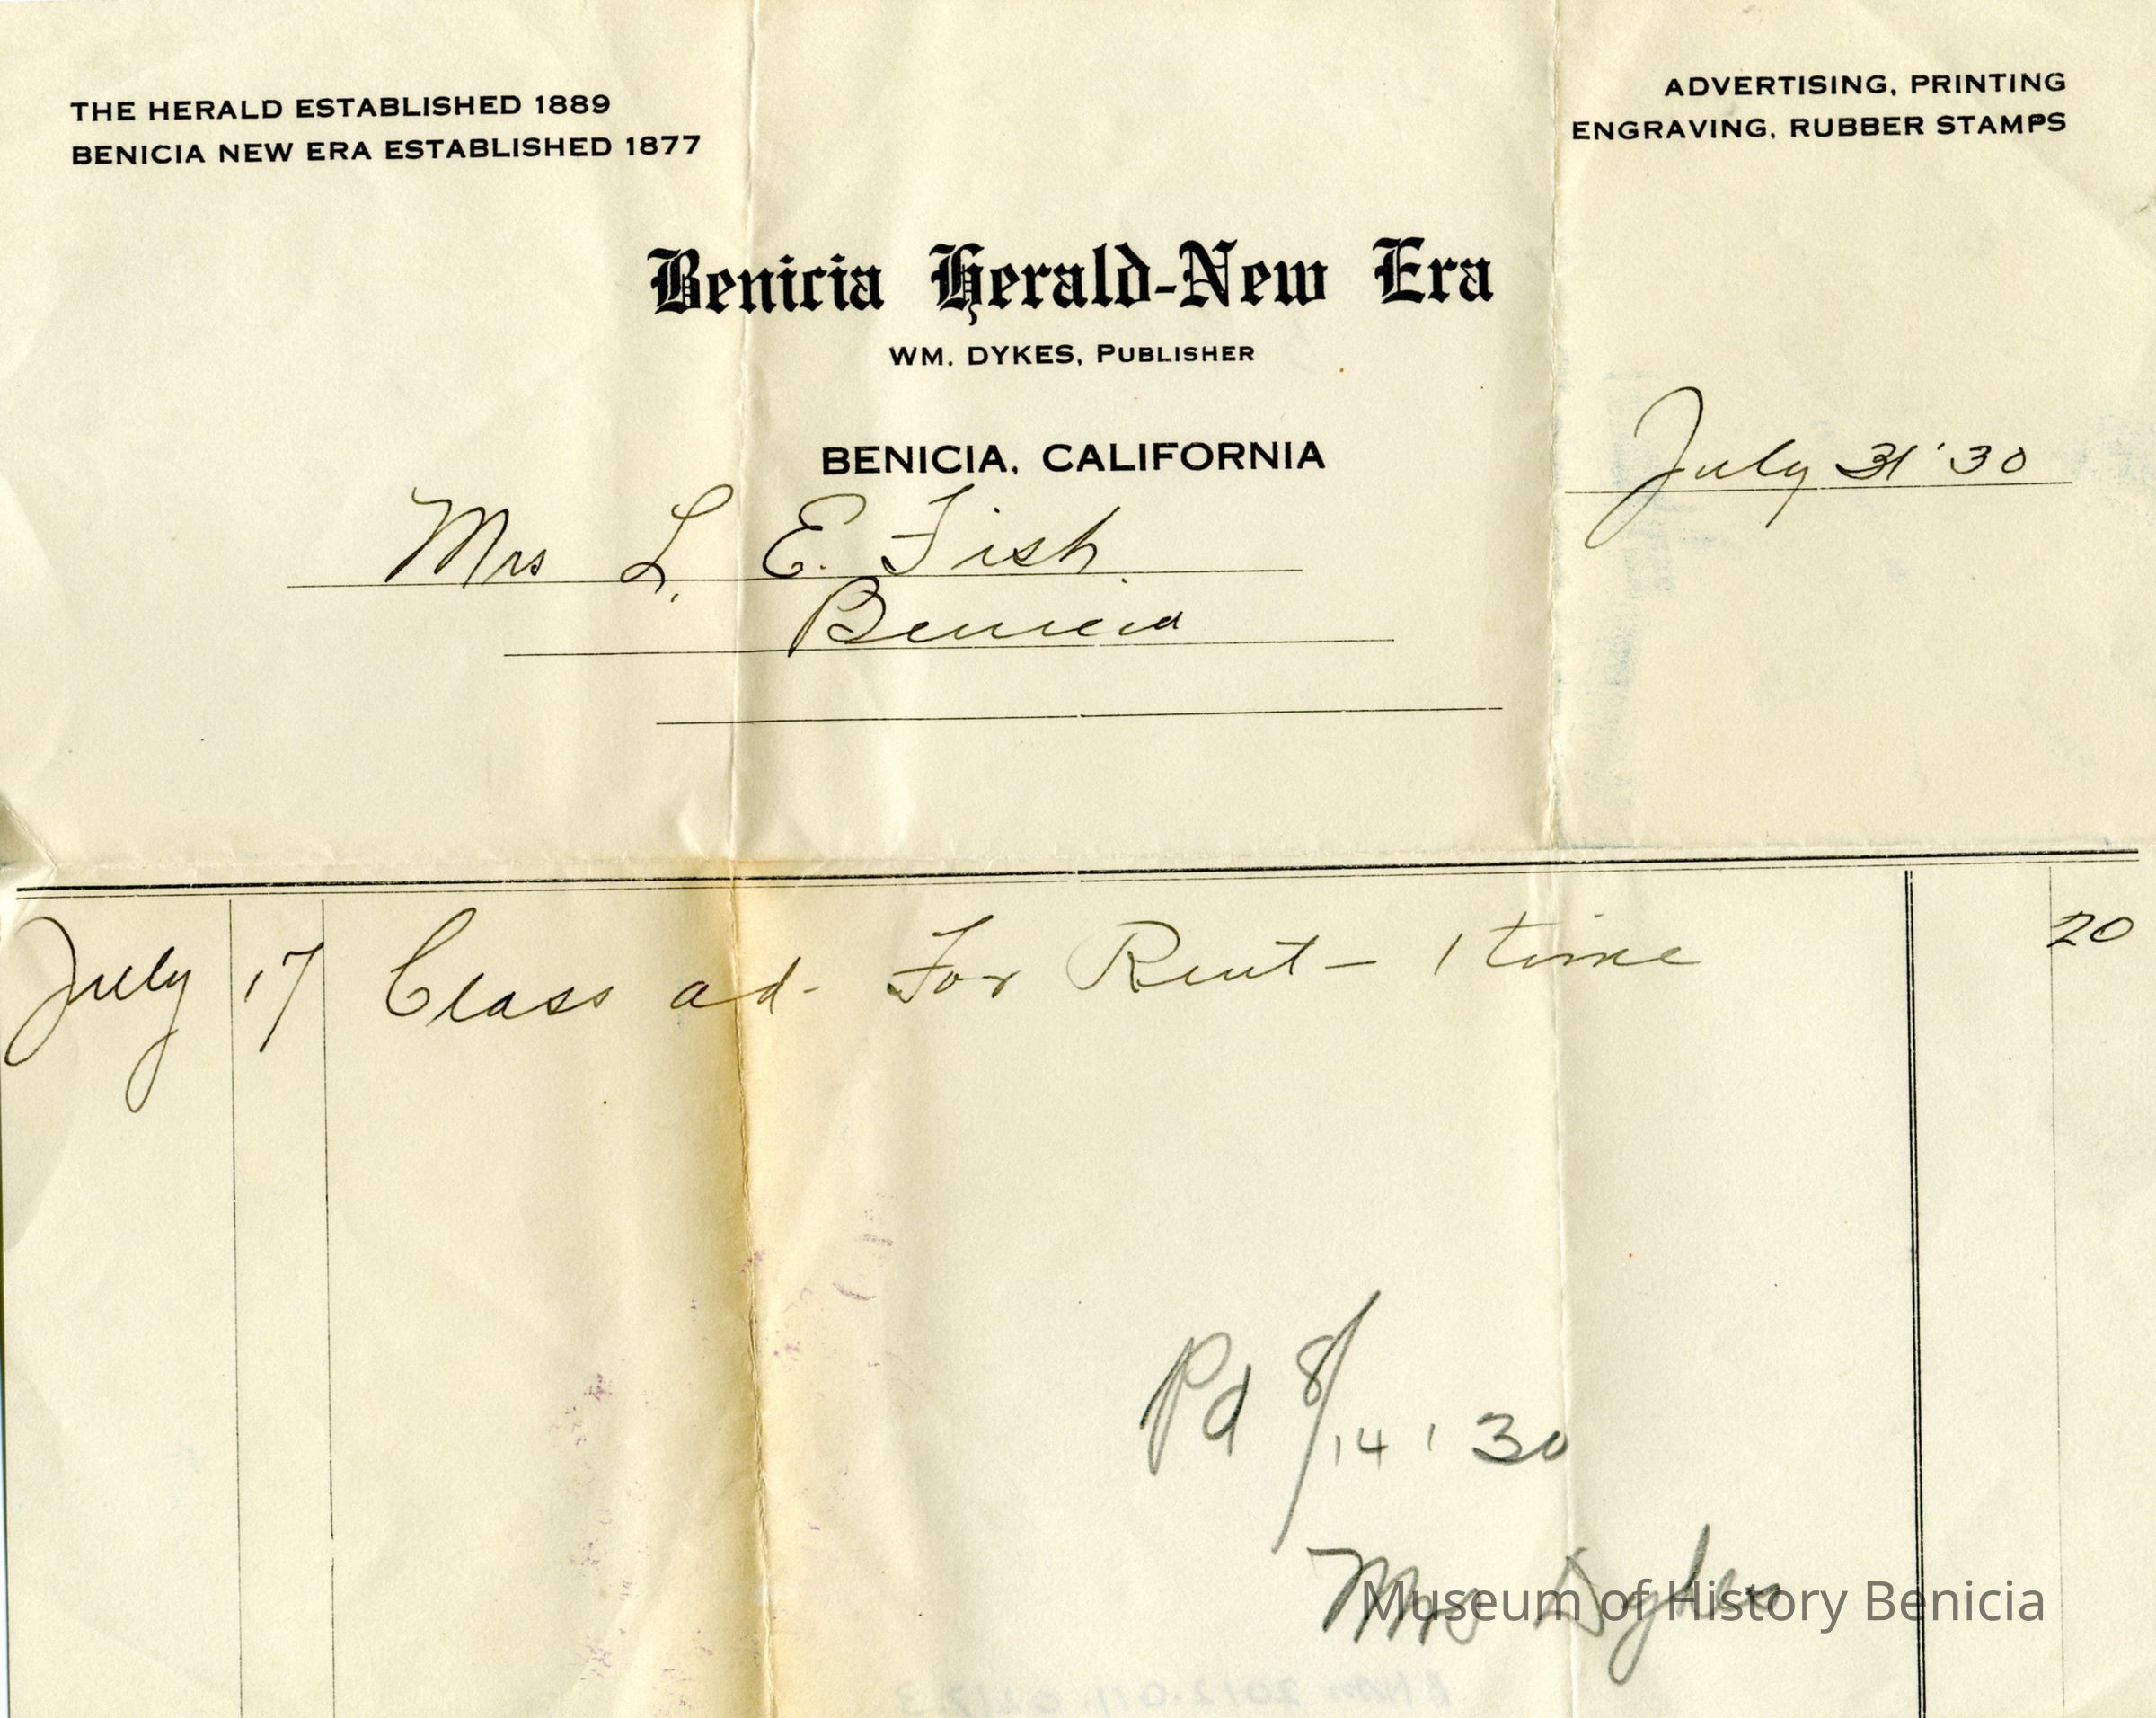 THE HERALD ESTABLISHED 1889
BENICIA NEW ERA ESTABLISHED 1877
ADVERTISING, PRINTING
ENGRAVING, RUBBER STAMPS
Benicia Herald-New Era
WM. DYKES, PUBLISHER
BENICIA, CALIFORNIA
July 31 '30
Mrs L. E. Fish.
Benicia
July 17 Class ad. For Rent - 1 time 20
Pd 8/14 ' 30
Mrs Dykes
Museum of History Benicia